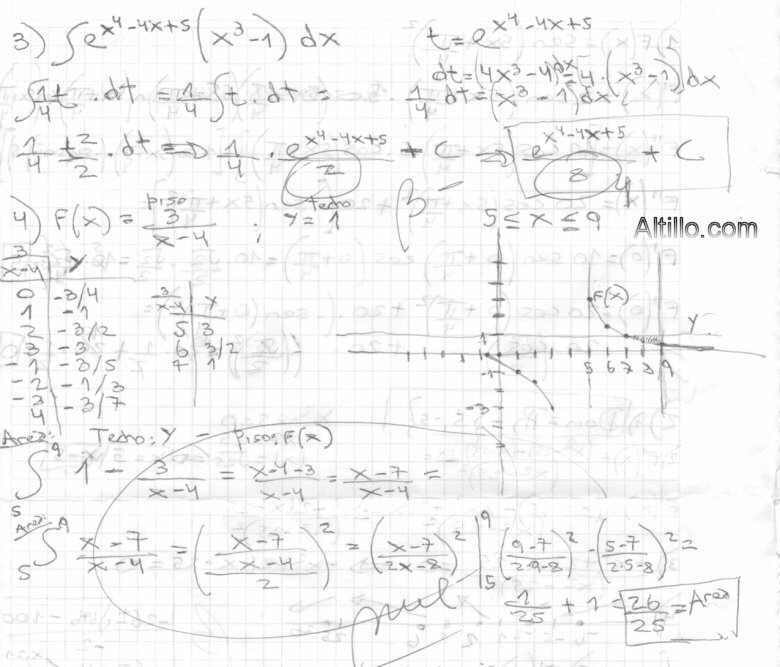 3) ∫ e^(x⁴-4x+5) (x³-1) dx
t = e^(x⁴-4x+5)
dt = (4x³-4)dx = 4·(x³-1)dx
∫ 1/4 t · dt = 1/4 ∫ t · dt =
1/4 dt = (x³-1)dx
1/4 t²/2 · dt => 1/4 · e^(x⁴-4x+5)/2 + C => e^(x⁴-4x+5)/8 + C
4
B⁻
4) F(x) = 3/(x-4) ; y = 1
piso
techo
5 ≤ x ≤ 9
Altillo.com
3/(x-4) | y
0 | -3/4
1 | -1
2 | -3/2
3 | -3
-1 | -3/5
-2 | -1/3
-3 | -3/7
4
3/(x-4) | y
5 | 3
6 | 3/2
7 | 1
F(x)
Y
1
-1
-3
5 6 7 8 9
Area: Techo: Y - piso: F(x)
∫₅⁹ 1 - 3/(x-4) = (x-4-3)/(x-4) = (x-7)/(x-4) =
Area:
∫₅⁹ (x-7)/(x-4) = 
= ((x-7)/(2x-8))² |₅⁹ ((9-7)/(2·9-8))² - ((5-7)/(2·5-8))² =
1/25 + 1 = 26/25 = Area